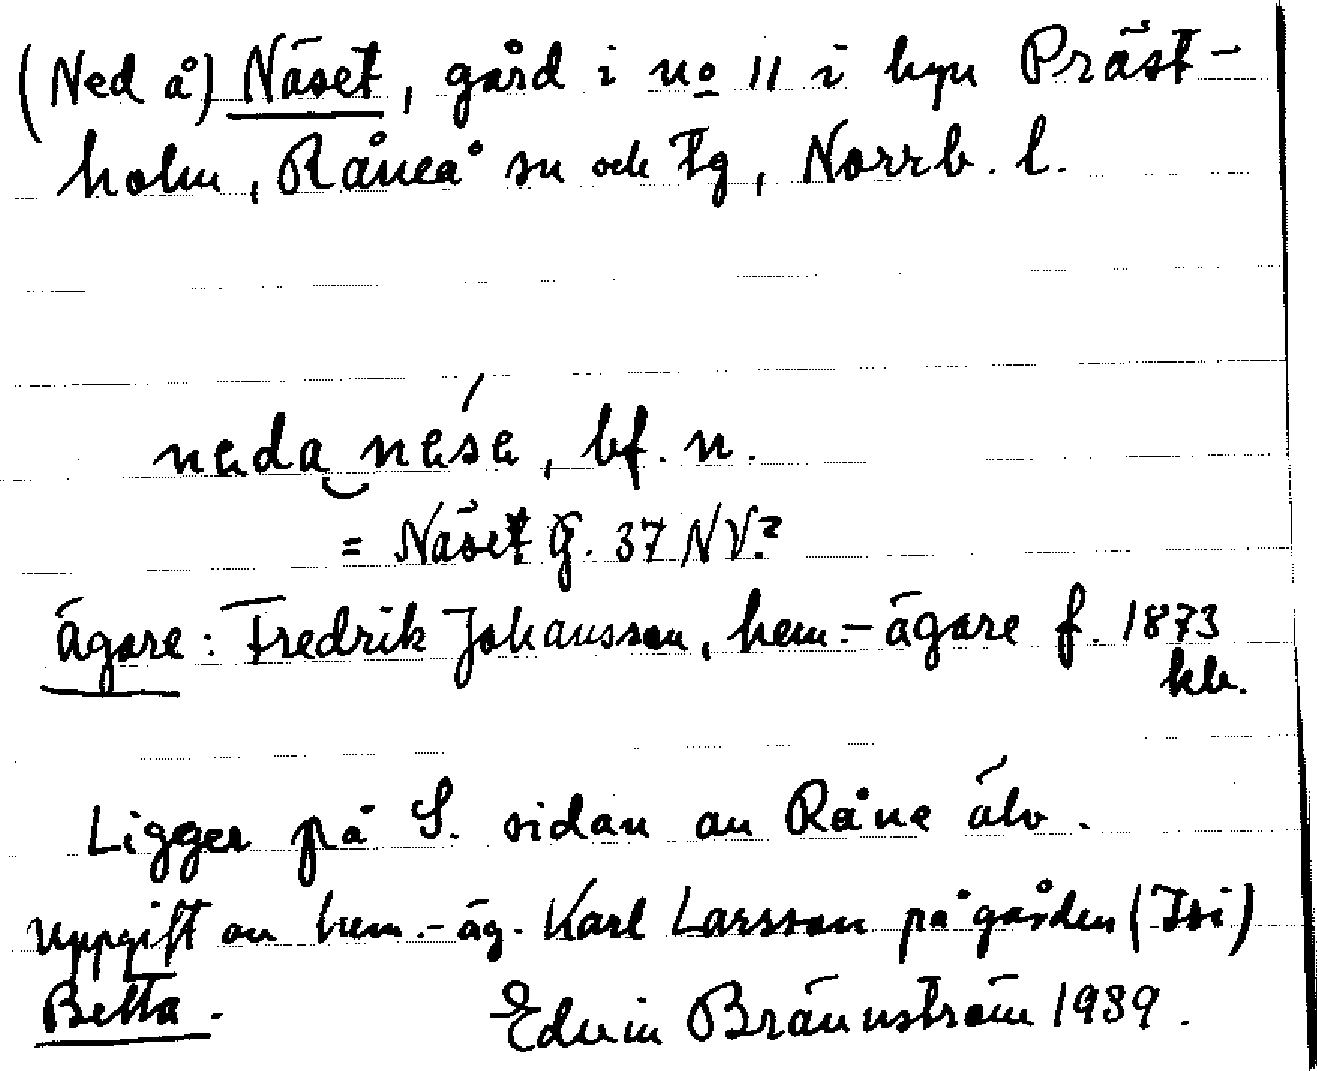 (Ned å) Näset, gård i no 11 i byn Präst-
holm, Råneå sn och tg, Norrb. l.
neda nese, bf. n.
= Näset G. 37 NV?
Ägare: Fredrik Johansson, hem.-ägare f. 1873
kb.
Ligger på S. sidan av Råne älv.
Uppgift av hem.-äg. Karl Larsson på gården (Isi)
Betta. Edvin Brännström 1939.